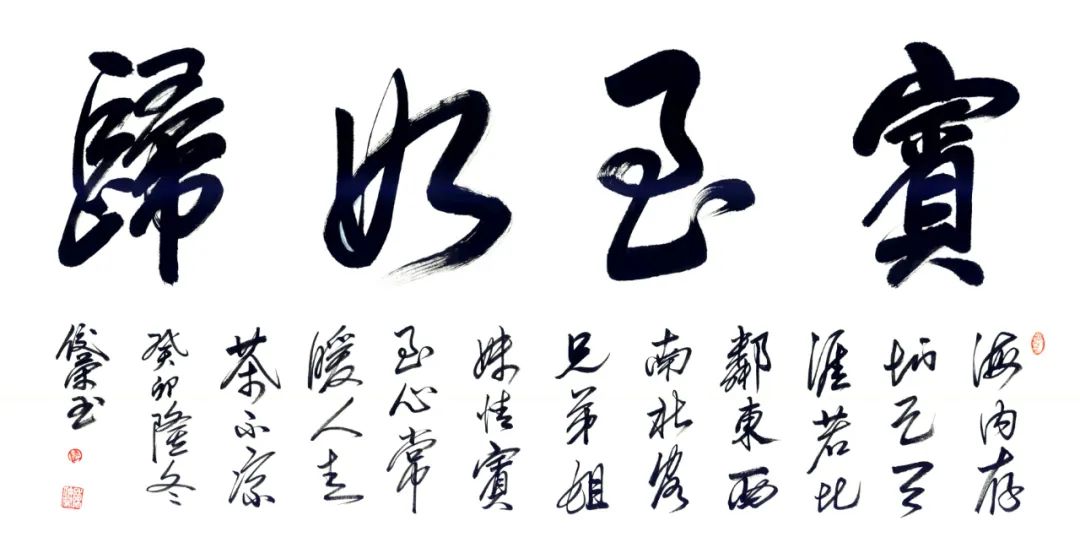 賓至如歸
海内存
知己天
涯若比
鄰東西
南北客
兄弟姐
妹情賓
至心常
暖人走
茶不涼
癸卯隆冬
书